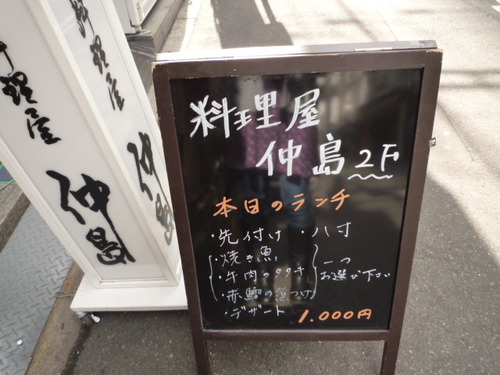 料理屋
仲島
料理屋
仲島
料理屋
仲島 2F
本日のランチ
・先付け ・八寸
・焼き魚
・牛肉のタタキ
一つ
お選び下さい
・デザート 1.000円